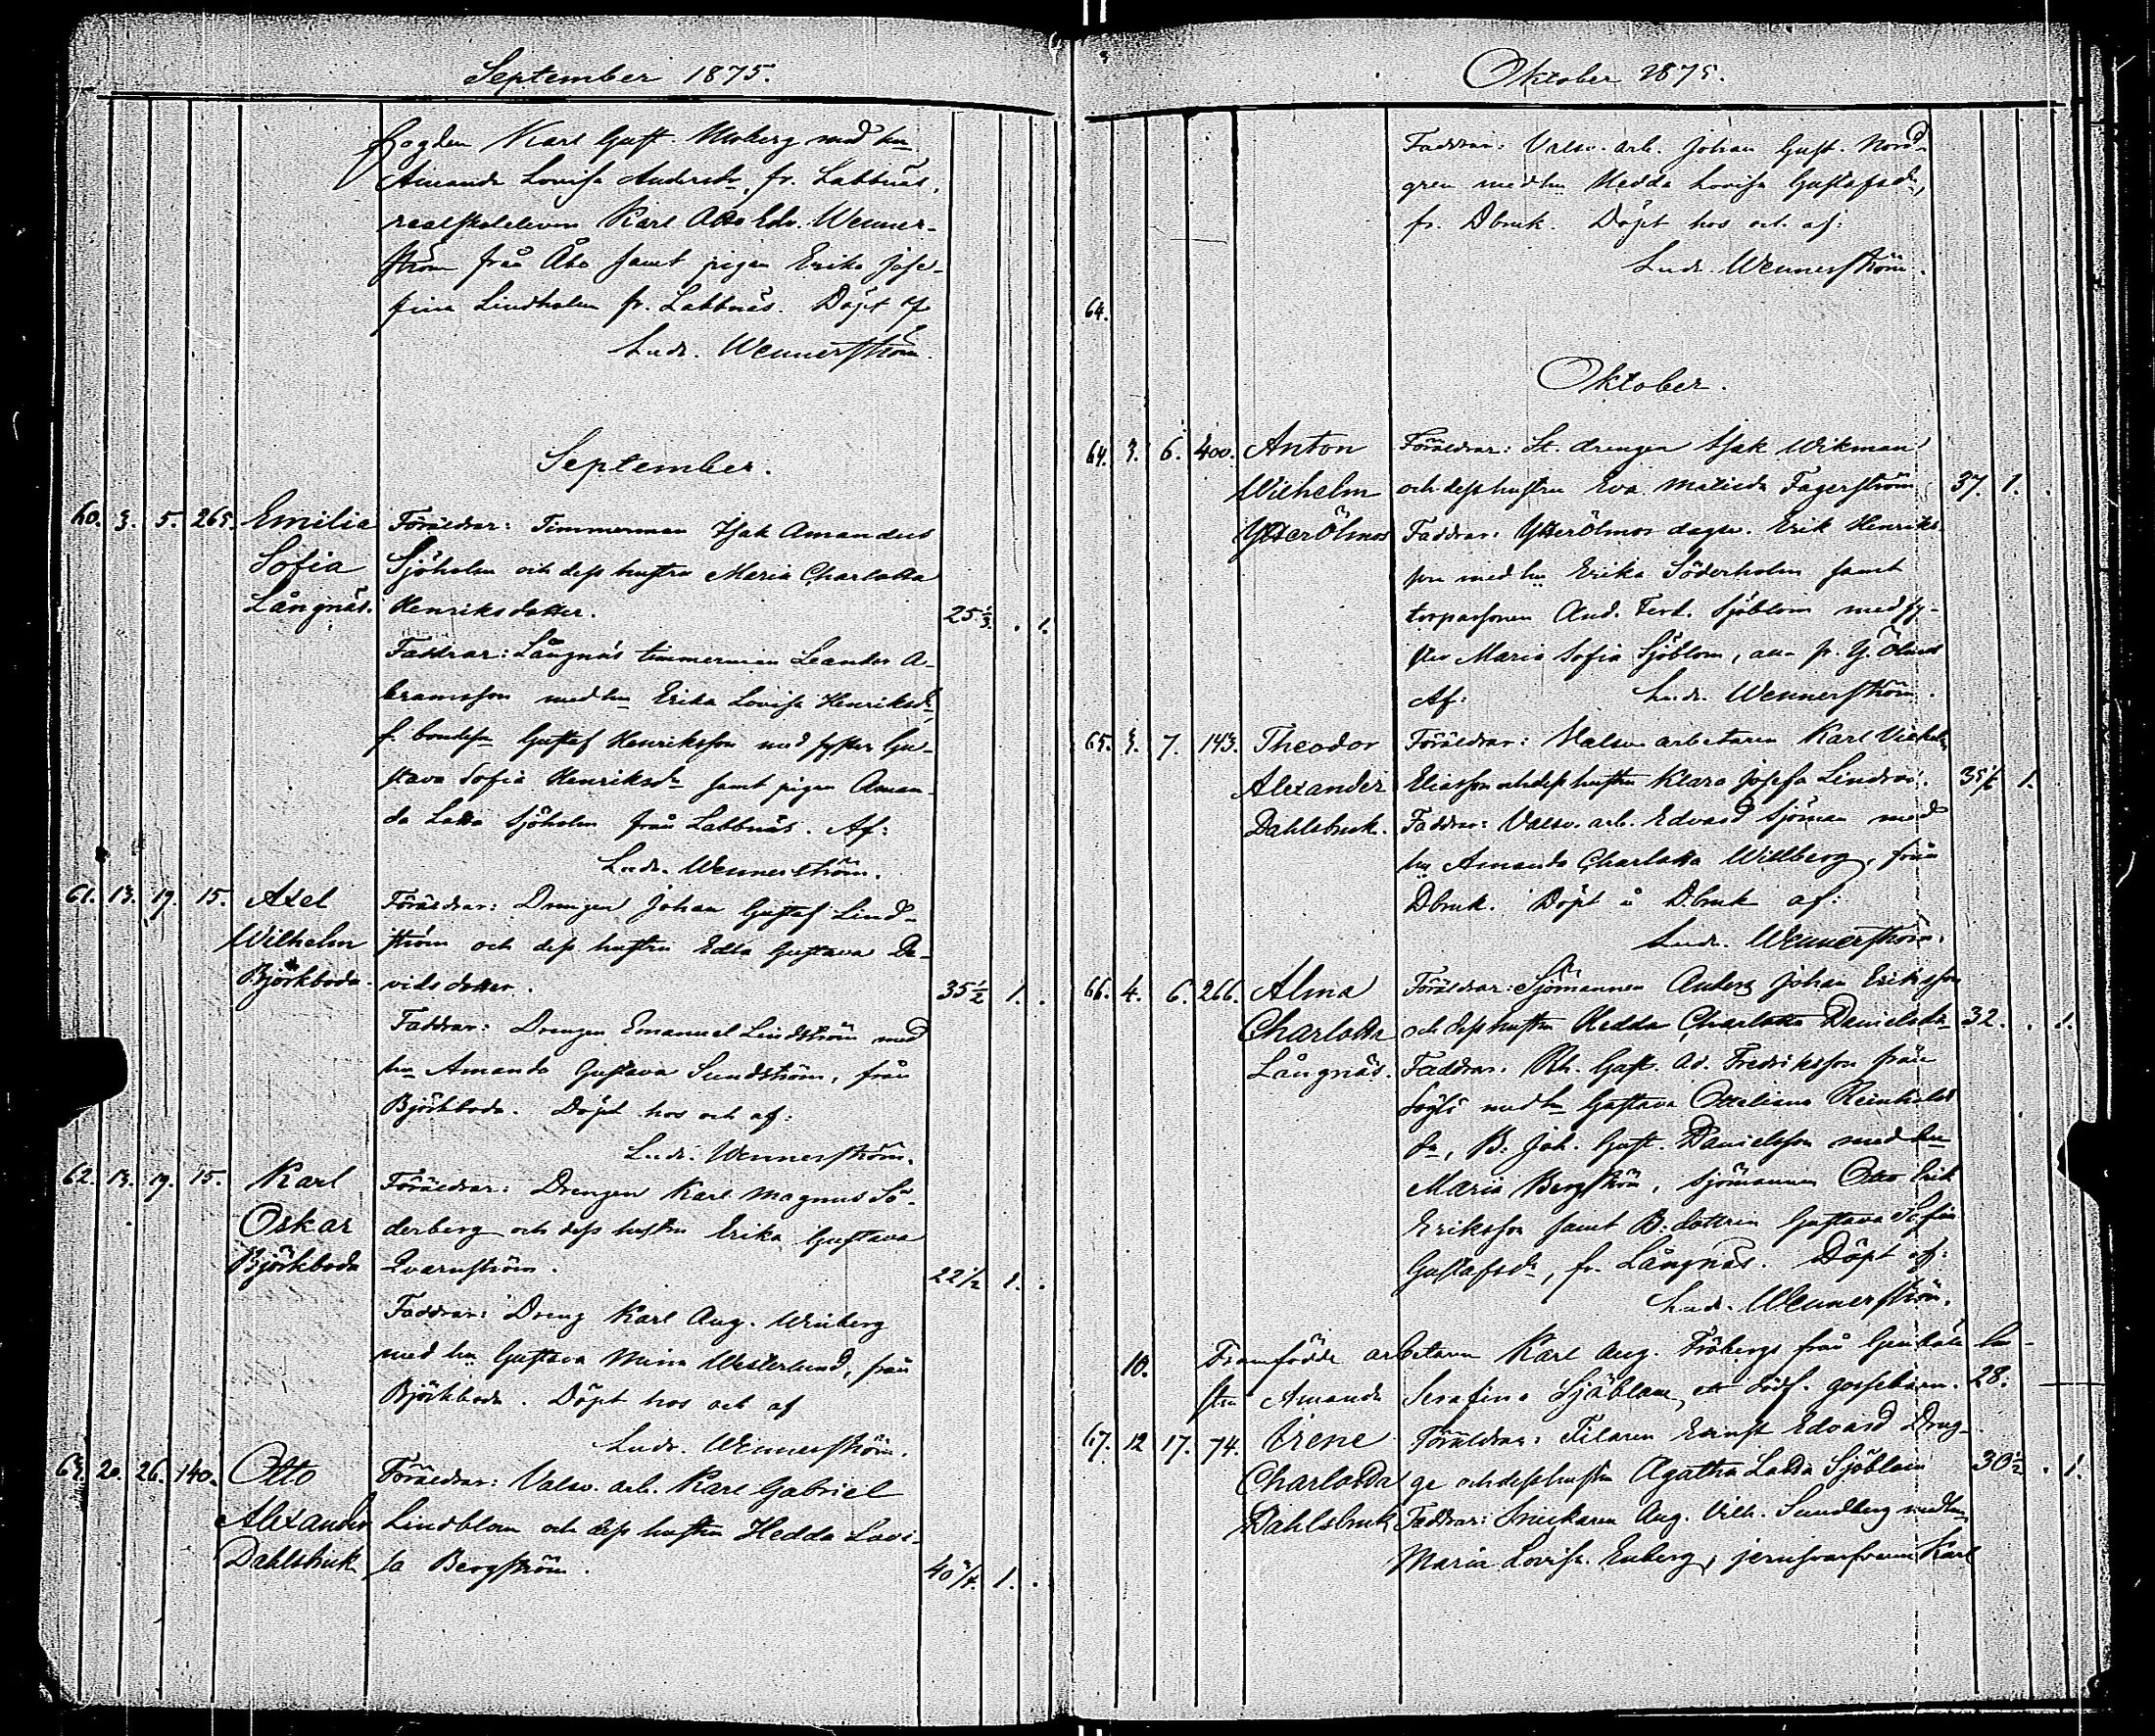 September 1875.
fogden Karl Gust. Moberg med hu
Amanda Lovisa Andersdr, fr. Labbnäs,
realskoleleven Karl Otto Edv. Wenner-
ström från Åbo samt pigan Erika Jose-
fina Lindholm fr. Labbnäs. Döpt af
Ludv. Wennerström.
September.
60. 3. 5. 265. Emilia Föräldrar: Timmerman Isak Amandus
Sofia Sjöholm och dess hustru Maria Charlotta
Långnäs. Henriksdotter. 25 1/3. . 1.
Faddrar: Långnäs timmerman Leander A-
bramsson med hu Erika Lovisa Henriksdr,
f. bondesn Gustaf Henriksson med syster Gu-
stava Sofia Henriksdr samt pigan Aman-
da Lotta Sjöholm från Labbnäs. Af:
Ludv. Wennerström.
61. 13. 19. 15. Axel Föräldrar: Drengen Johan Gustaf Lind-
Wilhelm ström och dess hustru Edla Gustava Da-
Björkboda. vidsdotter. 35 1/2 1. .
Faddrar: Drengen Emanuel Lindström med
hu Amanda Gustava Sundström, från
Björkboda. Döpt hos och af:
Ludv. Wennerström.
62. 13. 19. 15. Karl Föräldrar: Drengen Karl Magnus Sö-
Oskar derberg och dess hustru Erika Gustava
Björkboda Qvarnström. 22 1/2 1. .
Faddrar: Dreng Karl Aug. Winberg
med hu Gustava Mina Westerlund, från
Björkboda. Döpt hos och af
Ludv. Wennerström.
63. 20. 26. 140. Otto Föräldrar: Valsv. arb. Karl Gabriel
Alexander Lindblom och dess hustru Hedda Lovi-
Dahlsbruk sa Bergström. 40 3/4. 1. .
Oktober 1875.
Faddrar: Valsv. arb. Johan Gust. Nord-
gren med hu Hedda Lovisa Gustafsdr,
fr. Dbruk. Döpt hos och af:
Ludv. Wennerström.
64.
Oktober.
64. 3. 6. 400. Anton Föräldrar: St. drengen Isak Wikman
Wilhelm och dess hustru Eva Matilda Fagerström 37. 1. .
YtterÖlmos Faddrar: YtterÖlmos dagsv. Erik Henriks
son med hu Erika Söderholm samt
torparsonen And. Ferd. Sjöblom med sy-
ster Maria Sofia Sjöblom, alla fr. Y. Ölmos
Af: Ludv. Wennerström.
65. 3. 7. 143. Theodor Föräldrar: Valsv arbetaren Karl Vilhelm
Alexander Eliasson och dess hustru Klara Josefa Lindroos. 35 1/6 1.
Dahlsbruk. Faddrar: Valsv. arb. Edvard Sjöman med
hu Amanda Charlotta Willberg, från
Dbruk. Döpt å Dbruk af:
Ludv. Wennerström.
66. 4. 6. 266. Alma Föräldrar: Sjömannen Anders Johan Eriksson
Charlotta och dess hustru Hedda Charlotta Danielsdr 32. . 1.
Långnäs. Faddrar: Gust. Ad. Fredriksson från
med hu Gustava Ottiliana Reinholds
dr, B. Joh. Gust. Danielsson med hu
Maria Bergström, sjömannen Otto Erik
Eriksson samt B. dottren Gustava Sofia
Gustafsdr, fr. Långnäs. Döpt af:
Ludv. Wennerström.
10. Framfödde arbetaren Karl Aug. Fröbergs från Genböle hu-
stru Amanda Serafina Sjöblom ett dödf. gossebarn. 28.
67. 12 17. 74. Irene Föräldrar: Filaren Ernst Edvard Drug-
Charlotta ge och dess hustru Agatha Lotta Sjöblom 30 1/2 . 1.
Dahlsbruk Faddrar: Snickaren Aug. Vilh. Sundberg med hu
Maria Lovisa Enberg, jernsvarfvaren Karl